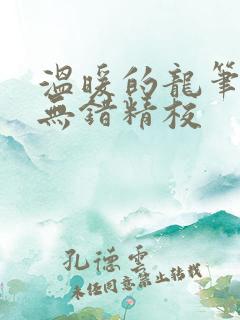 溫暖的龍筆
無錯精校
孔德雲
未經同意禁止轉載